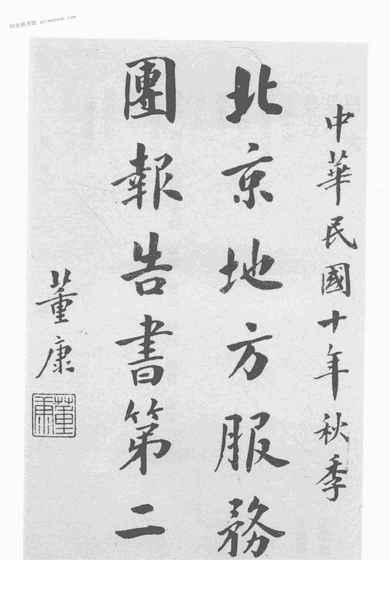 中華民國十年秋季
北京地方服務
團報告書第二
董康
董康